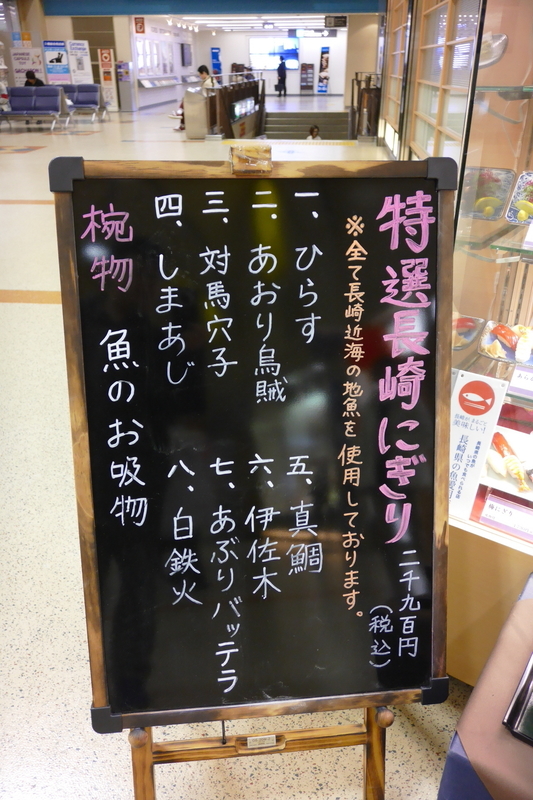 特選長崎にぎり 二千九百円
（税込）
※全て長崎近海の地魚を使用しております。
一、ひらす
五、真鯛
二、あおり烏賊
六、伊佐木
三、対馬穴子
七、あぶりバッテラ
四、しまあじ
八、白鉄火
椀物 魚のお吸物
美味しい!
長崎県の魚愛用店